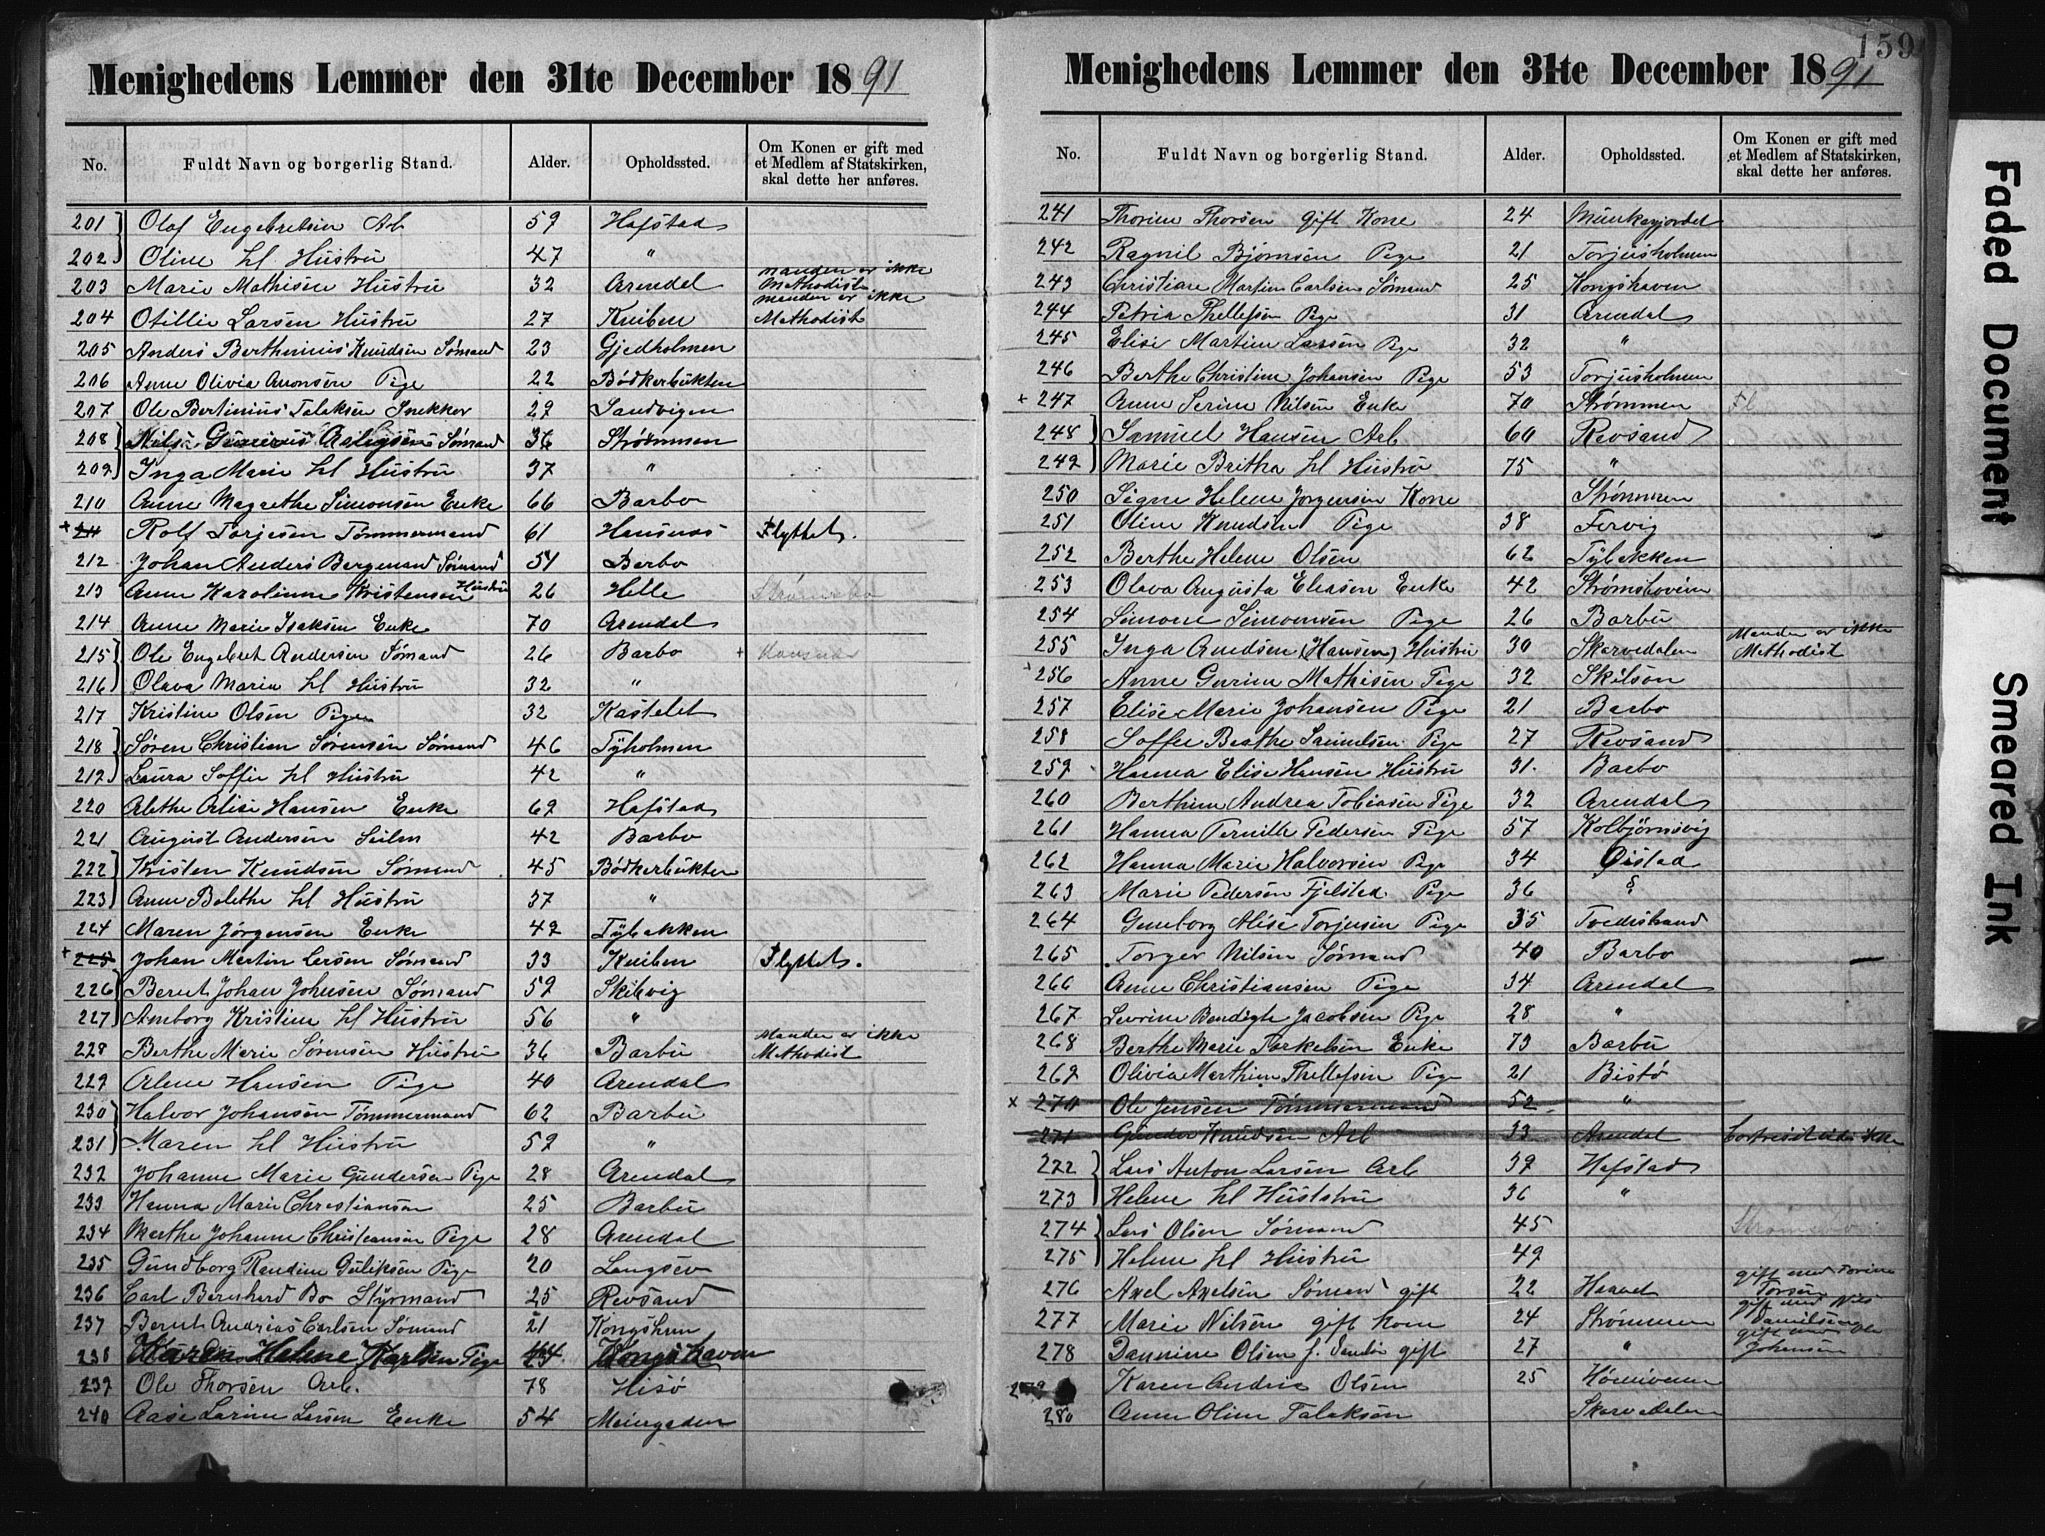 Menighedens Lemmer den 31te December 1891
No. Fuldt Navn og borgerlig Stand. Alder. Opholdssted. Om Konen er gift med et Medlem af Statskirken, skal dette her anføres.
201 Olaf Engebretsen Arb 59 Hafstad
202 Oline hl Hustru 47 "
203 Marie Mathisen Hustru 32 Arendal manden er ikke Methodist
204 Otillie Larsen Hustru 27 Kniben manden er ikke Methodist
205 Anders Berthinius Knudsen Sømand 23 Gjedholmen
206 Anne Olivia Aronsen Pige 22 Bödkerbukten
207 Ole Bertinius Talaksen Snekker 29 Sandvigen
208 Nils Aslagsen Sømand 36 Strømmen
209 Inga Marie hl Hustru 37 "
210 Anne Magrethe Simonsen Enke 66 Barbo
+ 211 Rolf Torjesen Tømmermand 61 Hansnæs Flyttet.
212 Johan Anders Bergmand Sømand 51 Barbo
213 Anne Karolinne Kristensen Hustru 26 Helle
214 Anne Marie Isaksen Enke 70 Arendal
215 Ole Engebret Andersen Sømand 26 Barbo +
216 Olava Maria hl Hustru 32 "
217 Kristine Olsen Pige 32 Kastelet
218 Søren Christian Sørensen Sømand 46 Tyholmen
219 Laura Soffie hl Hustru 42 "
220 Alethe Elise Hansen Enke 69 Hafstad
221 August Andersen 42 Barbo
222 Kristen Knudsen Sømand 45 Bödkerbukten
223 Anne Bolethe hl Hustru 37 "
224 Maren Jørgensen Enke 49 Tybakken
+ 225 Johan Martin Larsen Sømand 33 Kniben Flyttet.
226 Bernt Johan Johnsen Sømand 59 Skibvig
227 Anborg Kristine hl Hustru 56 "
228 Berthe Marie Sørensen Hustru 36 Barbu Manden er ikke Methodist
229 Olene Hansen Pige 40 Arendal
230 Halvor Johansen Tømmermand 62 Barbu
231 Maren hl Hustru 59 "
232 Johanne Marie Gundersen Pige 28 Arendal
233 Hanna Marie Christiansen 25 Barbu
234 Marthe Johanne Christiansen Pige 28 Arendal
235 Gundborg Randine Guliksen Pige 20 Langsev
236 Carl Bernhard Bo Styrmand 25 Revsand
237 Bernt Andrias Carlsen Sømand 21 Kongshavn
238 Karen Helene Karlsen Pige Kongshavn
239 Ole Thorsen Arb. 78 Hisö
240 Aase Larine Larsen Enke 54
159
Menighedens Lemmer den 31te December 1891
No. Fuldt Navn og borgerlig Stand. Alder. Opholdssted. Om Konen er gift med et Medlem af Statskirken, skal dette her anføres.
241 Thorine Thorsen gift Kone 24 Munkegjordet
242 Ragnil Bjørnsen Pige 21 Torjusholmen
243 Christiane Martin Carlsen Sømand 25 Kongshavn
244 Petria Thellefsen Pige 31 Arendal
245 Elise Martine Larsen Pige 32 "
246 Berthe Christine Johansen Pige 53 Torjusholmen
+ 247 Anne Serine Nilsen Enke 70 Strømmen Fl
248 Samuel Hansen Arb 60 Revsand
249 Marie Britha hl Hustru 75 "
250 Signe Helene Jørgensen Kone Strømmen
251 Oline Knudsen Pige 38 Fervig
252 Berthe Helene Olsen 62 Tybakken
253 Olava Augusta Eliasen Enke 42
254 Simone Simonsen Pige 26 Barbu
255 Inga Knudsen (Hansen) Hustru 30 Skarvedalen Manden er ikke Methodist
+ 256 Anne Gurine Mathisen Pige 32 Skilson
257 Elise Marie Johansen Pige 21 Barbo
258 Soffie Beathe Samuelsen Pige 27 Revsand
259 Hanna Elise Hansen Hustru 31. Barbo
260 Berthine Andrea Tobiasen Pige 32 Arendal
261 Hanna Pernille Pedersen Pige 57 Kolbjørnsvig
262 Hanna Marie Halvorsen Pige 34 Öistad
263 Marie Pedersen Fjelsted Pige 36
264 Gunborg Alise Torjusen Pige 35 Tvedestrand
265 Torger Nilsen Sømand 40 Barbo
266 Anne Christiansen Pige 34 Arendal
267 Sevrine Bendigte Jacobsen Pige 28 "
268 Berthe Marie Torkelsen Enke 73 Barbu
269 Olivia Marthine Thellefsen Pige 21 Bistö
x 270 Ole Jensen Tömmermand 52 "
271 Gunder Knudsen Arb 33 Arendal
272 Lars Anton Larsen Arb 39 Hafstad
273 Helene hl Hustru 36 "
274 Lars Olsen Sømand 45
275 Helene hl Hustru 49
276 Axel Axelsen Sømand gift 22 gift med Torine Torsen
277 Marie Nilsen gift kone 24 Strømmen gift med Nils Danielsen
278 Dannine Olsen f. gift 27 " gift med Ole Johansen
279 Karen Andrea Olsen 25
280 Anne Oline Talaksen Skarvedalen
Faded Document
Smeared Ink